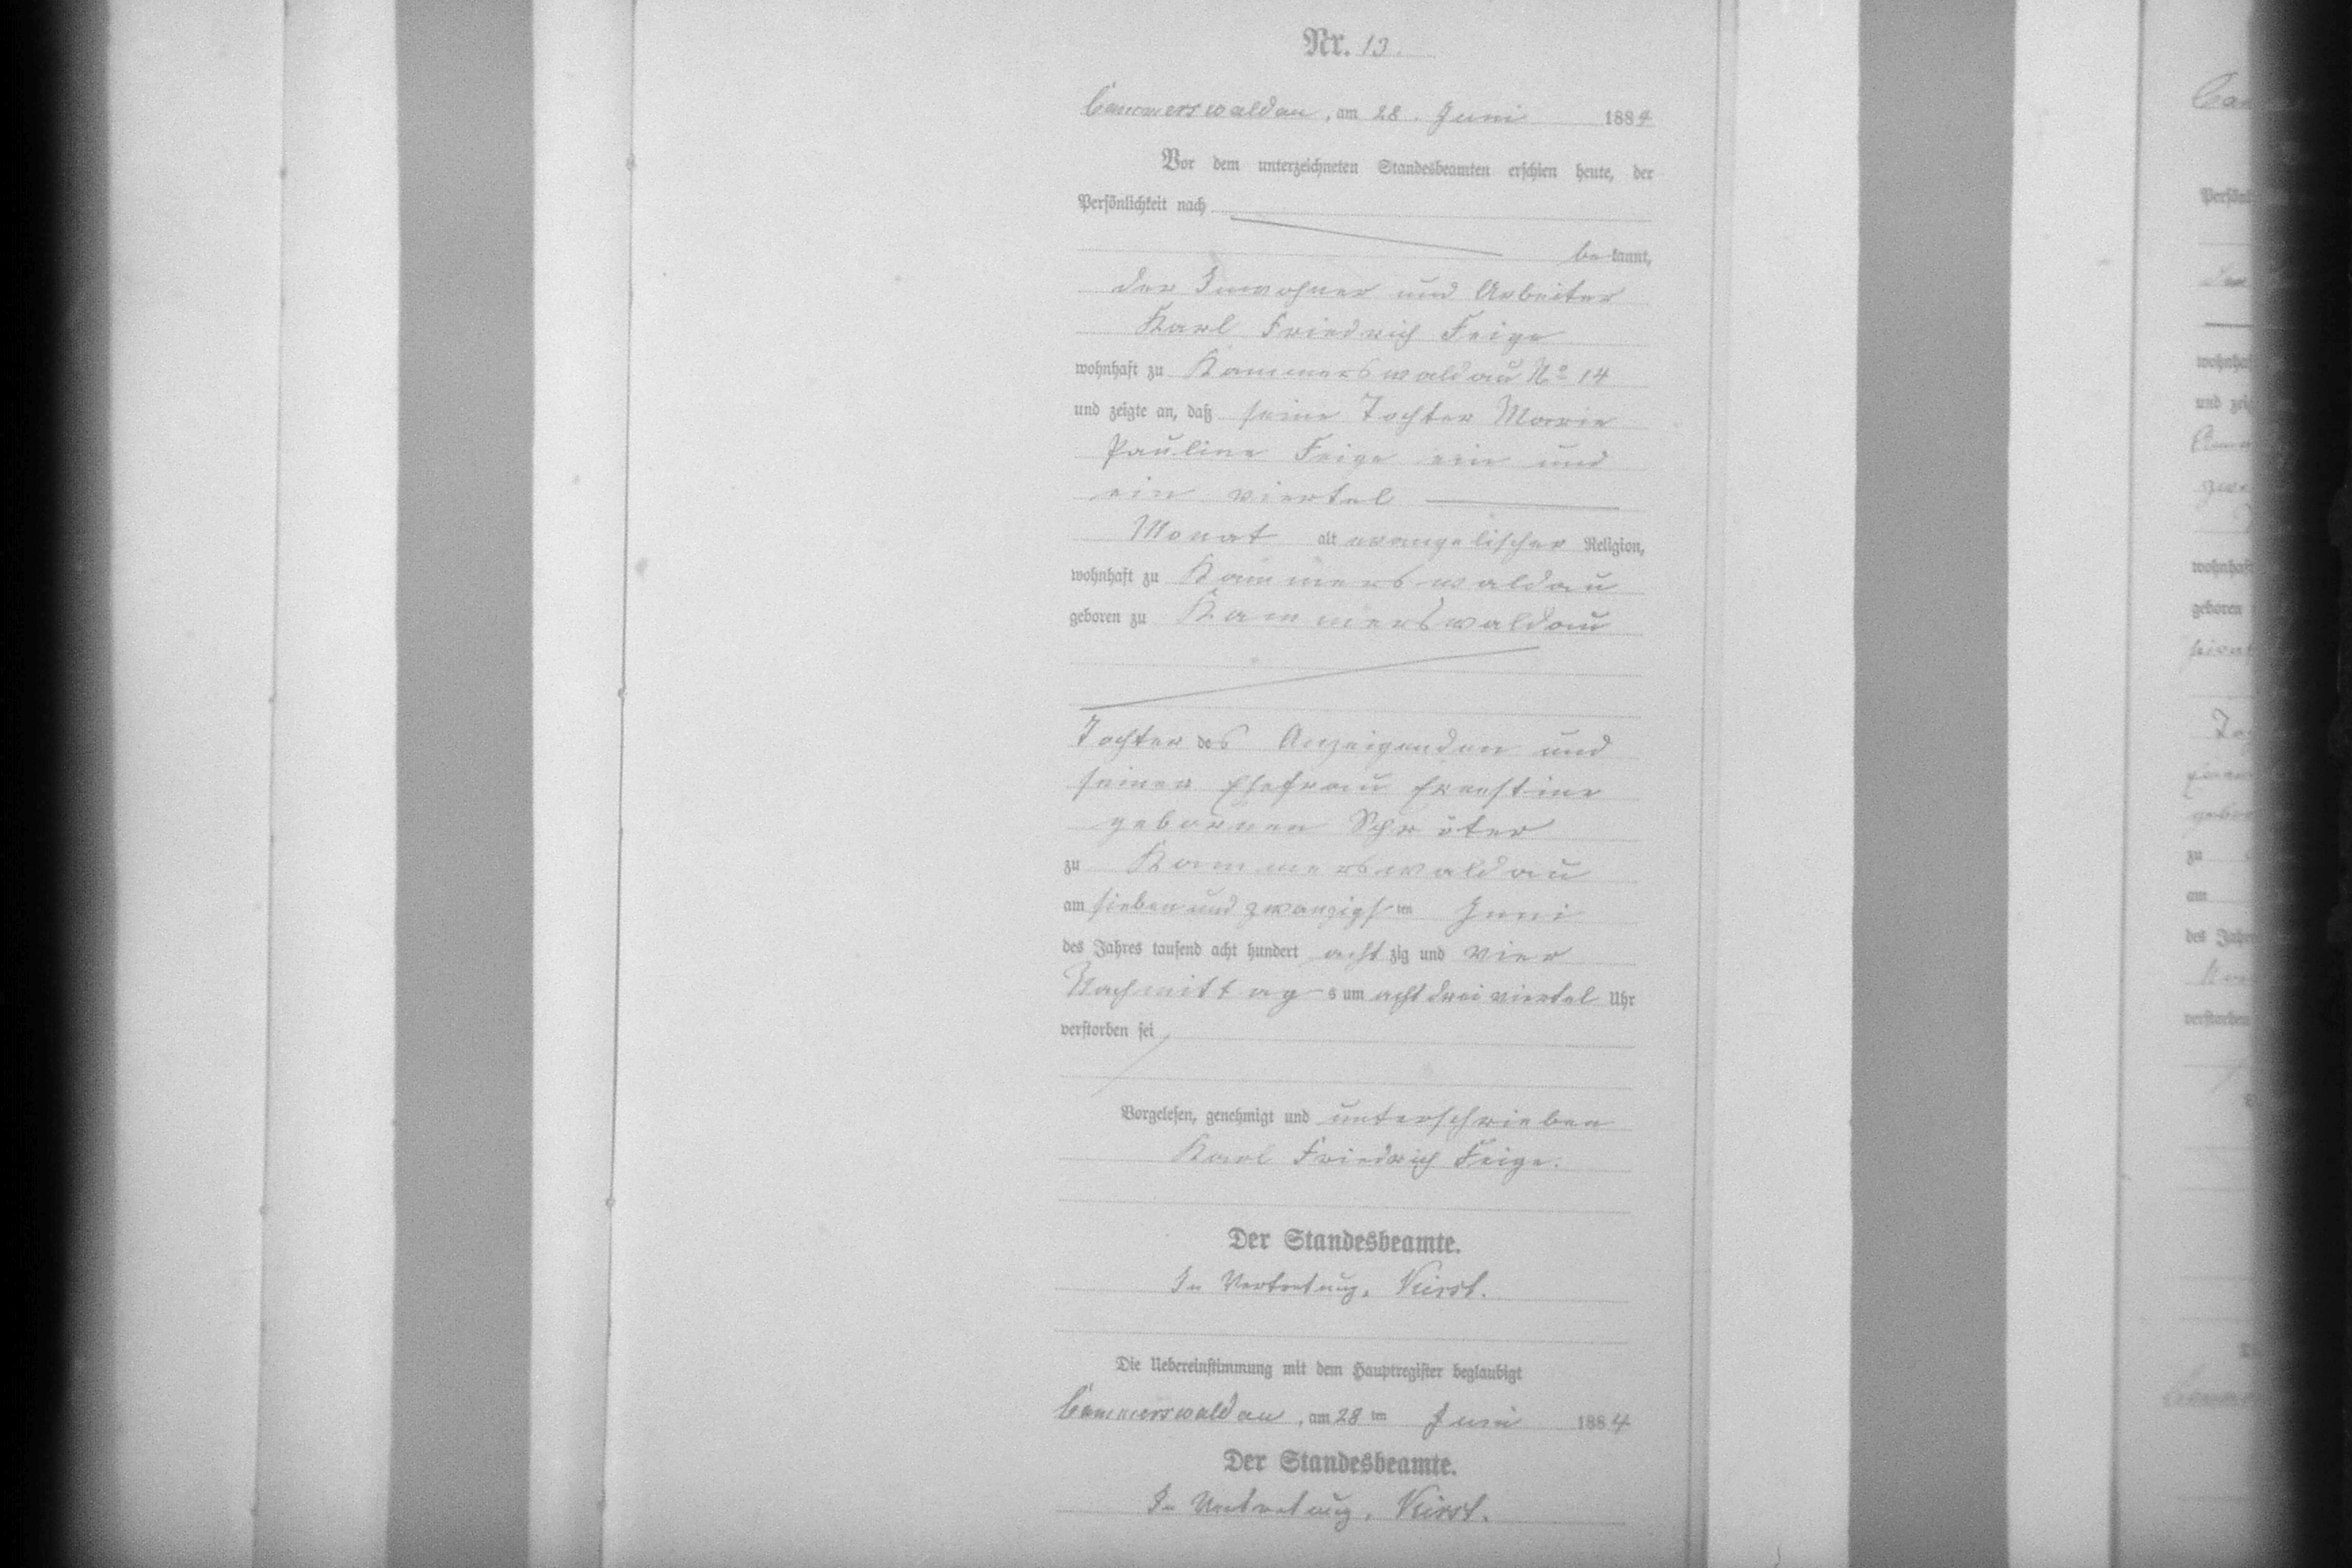 Nr. 13.
Cammerswaldau, am 28. Juni 1884
Vor dem unterzeichneten Standesbeamten erschien heute, der
Persönlichkeit nach
bekannt,
der Inwohner und Arbeiter
Karl Friedrich Feige
wohnhaft zu Kammerswaldau No 14
und zeigte an, daß seine Tochter Marie
Pauline Feige ein und
ein viertel
Monat alt evangelischer Religion,
wohnhaft zu Kammerswaldau
geboren zu Kammerswaldau
Tochter des Anzeigenden und
seiner Ehefrau Ernestine
gebornen Schröter
zu Kammerswaldau
am sieben und zwanzigsten Juni
des Jahres tausend acht hundert achtzig und vier
Nachmittags um acht drei viertel Uhr
verstorben sei
Vorgelesen, genehmigt und unterschrieben
Karl Friedrich Feige.
Der Standesbeamte.
In Vertretung,
Die Uebereinstimmung mit dem Hauptregister beglaubigt
Cammerswaldau, am 28ten Juni 1884
Der Standesbeamte.
In Vertretung,
wohnhaft
geboren
zu
am
verstorben